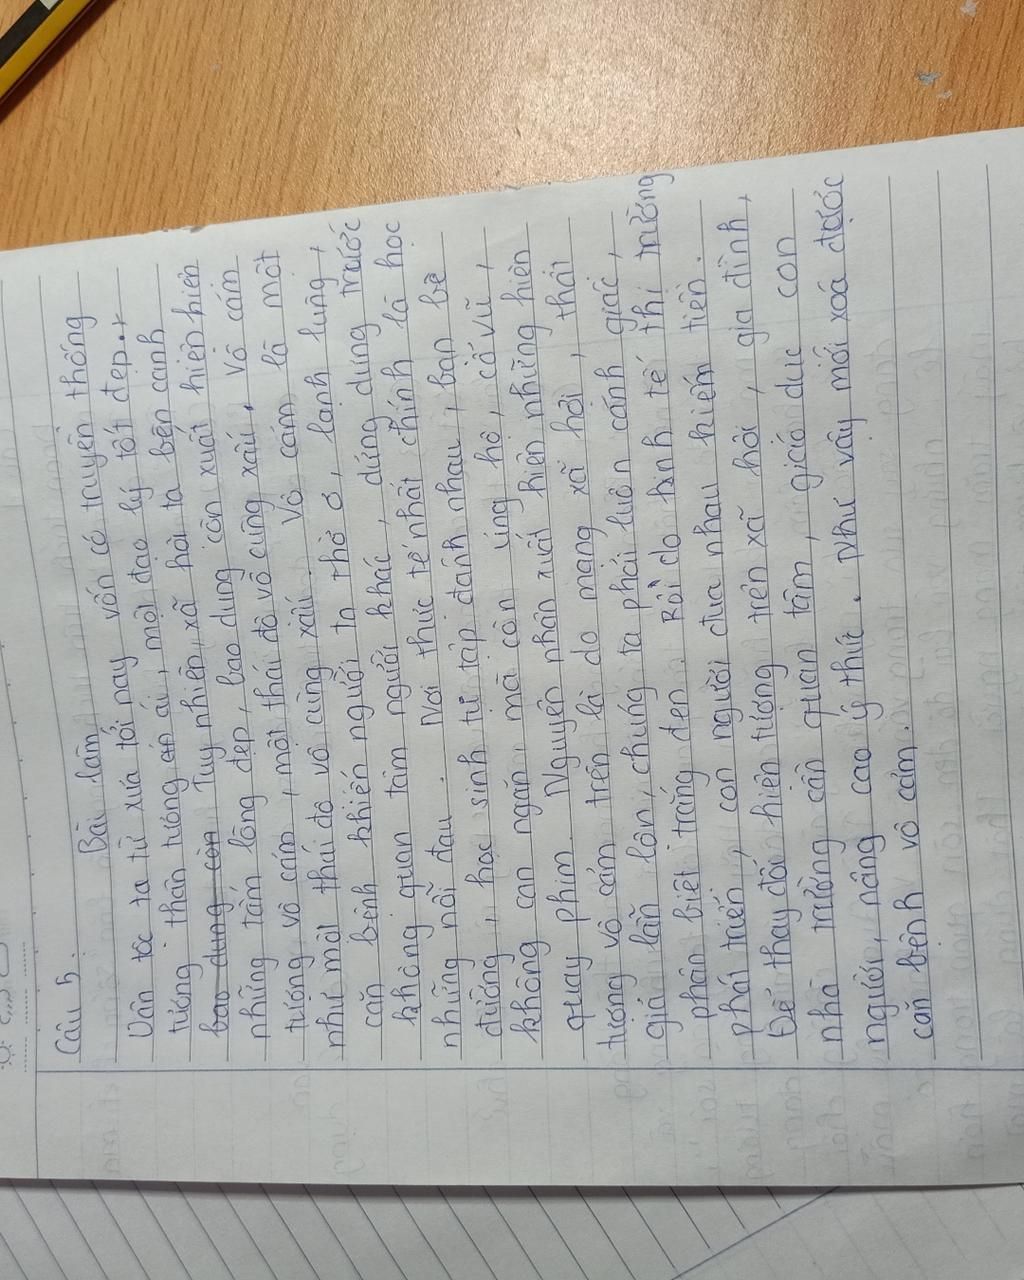 Câu 5.
Bài làm
Dân tộc ta từ xưa tới nay vốn có truyền thống
tương thân tương ái, một đạo lý tốt đẹp.
bao dung còn Tuy nhiên, xã hội ta bên cạnh
những tấm lòng đẹp, bao dung còn xuất hiện hiện
tượng vô cảm, một thái độ vô cùng xấu. Vô cảm
như một thái độ vô cùng xấu. Vô cảm là một
căn bệnh khiến người ta thờ ơ, lạnh lùng,
không quan tâm người khác, dửng dưng trước
những nỗi đau. Nơi thực tế nhất chính là học
đường, học sinh tụ tập đánh nhau, bạn bè
không can ngăn, mà còn ủng hộ, cổ vũ,
quay phim. Nguyên nhân xuất hiện những hiện
tượng vô cảm trên là do mạng xã hội, thật
giả lẫn lộn, chúng ta phải luôn cảnh giác,
phân biệt trắng đen. Rồi do kinh tế thị trường
phát triển, con người đua nhau kiếm tiền.
Để thay đổi hiện tượng trên xã hội, gia đình,
nhà trường cần quan tâm, giáo dục con
người, nâng cao ý thức. Như vậy mới xoá được
căn bệnh vô cảm.